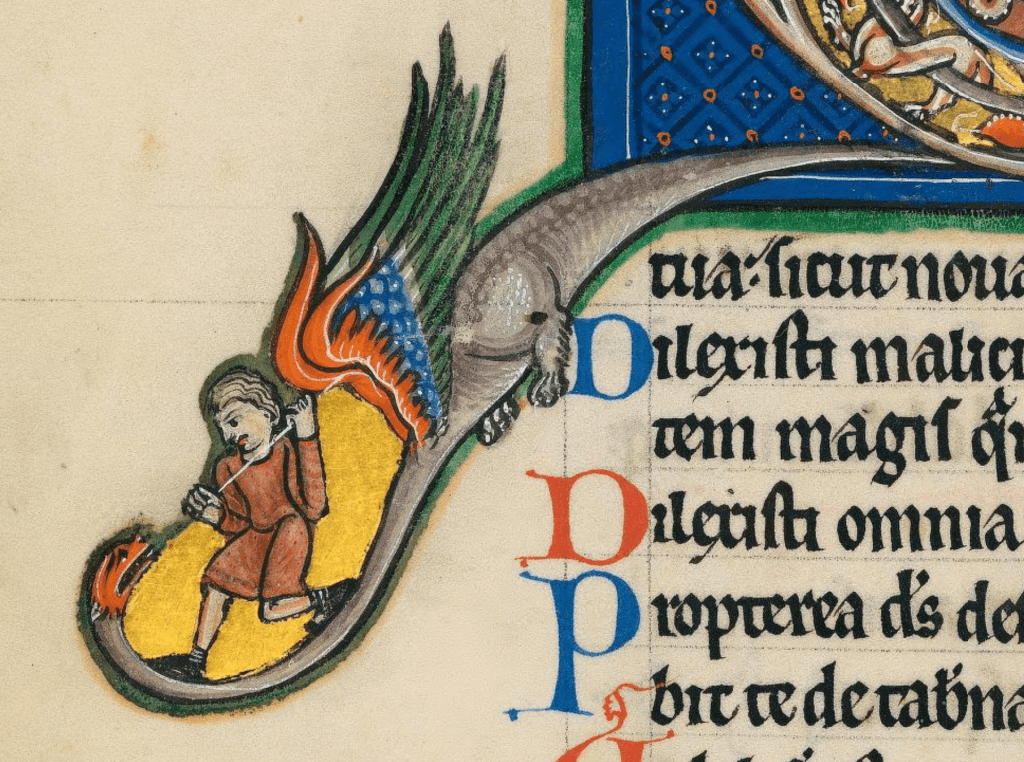 tua: sicut noua
Dilexisti malici
tem magis qͣ
Dilexisti omnia
Propterea d̅s des
bit te de tab̅na